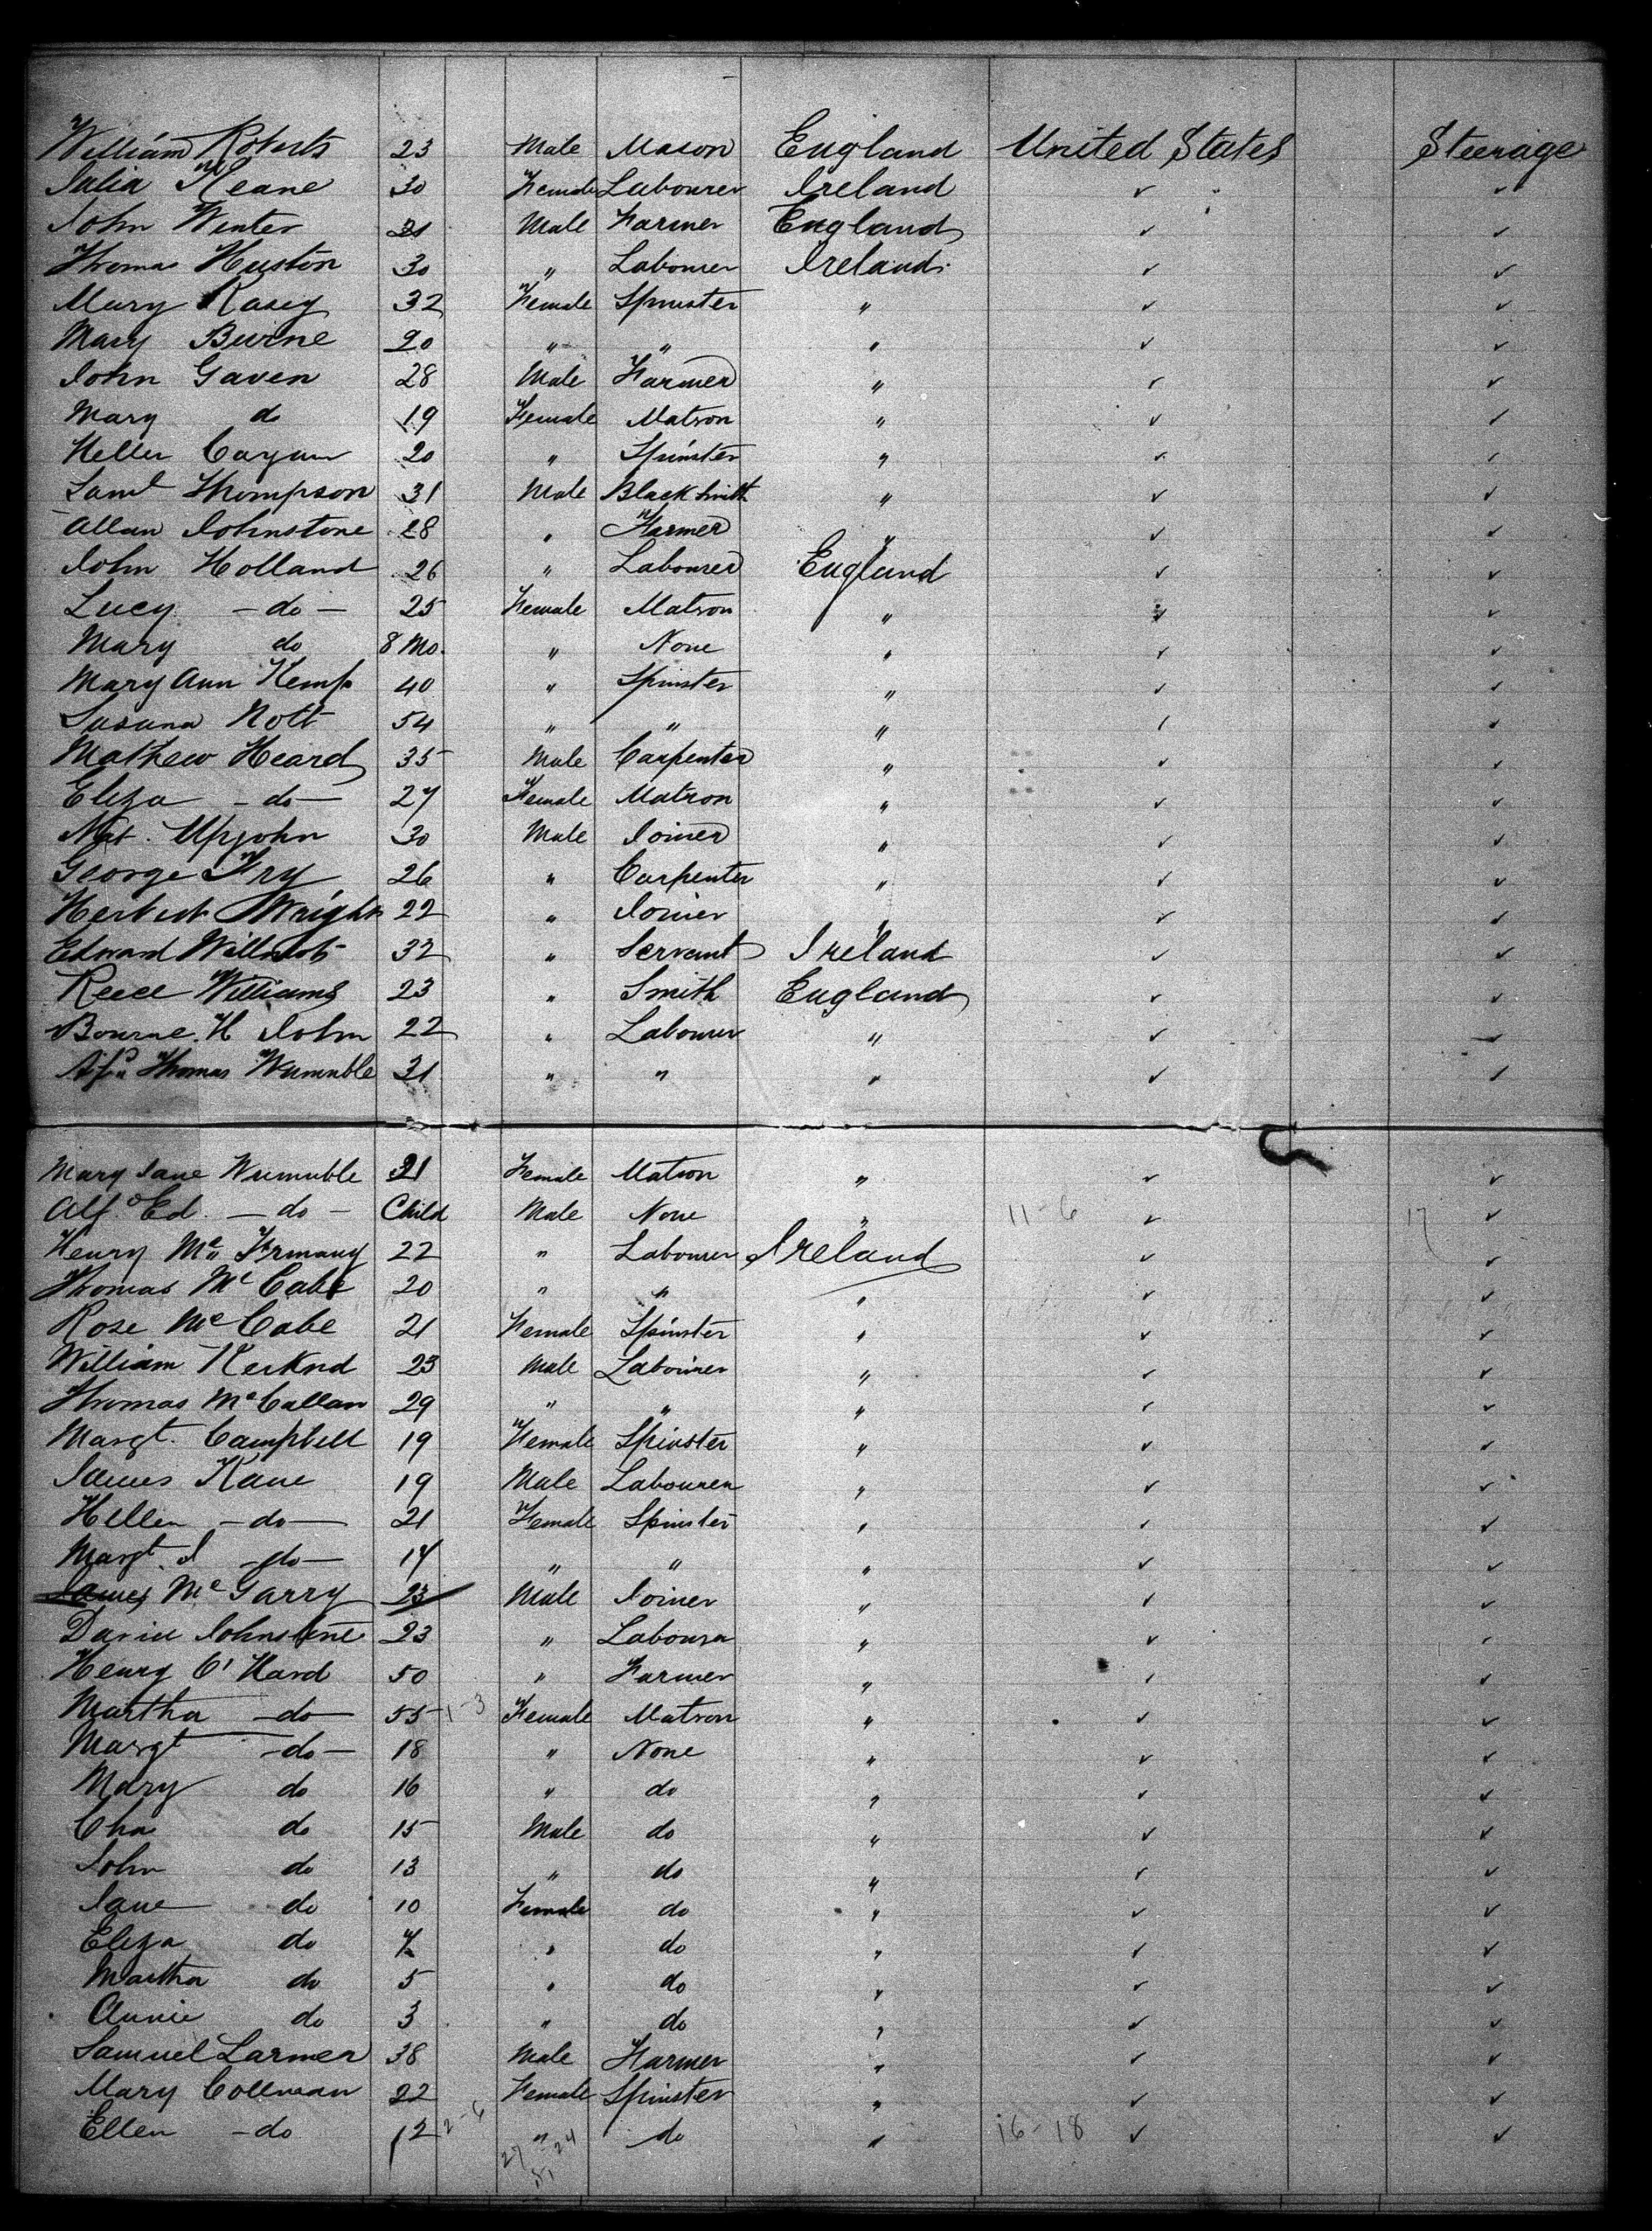 William Roberts 23 Male Mason England United States Steerage
Julia Keane 30 Female Labourer Ireland ✓ ✓
John Winter 31 Male Farmer England ✓ ✓
Thomas Huston 30 " Labourer Ireland ✓ ✓
Mary Kasey 32 Female Spinster " ✓ ✓
Mary Burne 20 " " " ✓ ✓
John Gaven 28 Male Farmer " ✓ ✓
Mary do 19 Female Matron " ✓ ✓
20 " Spinster " ✓ ✓
Saml Thompson 31 Male Black Smith " ✓ ✓
Allan Johnstone 28 " Farmer " ✓ ✓
John Holland 26 " Labourer England ✓ ✓
Lucy - do - 25 Female Matron " ✓ ✓
Mary do 8 Mo. " None " ✓ ✓
Mary Ann Kemp 40 " Spinster " ✓ ✓
Susana Nott 54 " " " ✓ ✓
Mathew Heard 35 Male Carpenter " ✓ ✓
Eliza - do - 27 Female Matron " ✓ ✓
Upjohn 30 Male Joiner " ✓ ✓
George Fry 26 " Carpenter " ✓ ✓
Herbert Wright 22 " Joiner " ✓ ✓
Edward 32 " Servant Ireland ✓ ✓
Reece Williams 23 " Smith England ✓ ✓
Bourne. H John 22 " Labourer " ✓ ✓
Thomas Wumuble 31 " " " ✓ ✓
Mary Jane Wumuble 31 Female Matron " ✓ ✓
Alf. Ed. - do - Child Male None " 11-6 ✓ 17 ✓
Henry 22 " Labourer Ireland ✓ ✓
Thomas Mc Cabe 20 " " " ✓ ✓
Rose Mc Cabe 21 Female Spinster " ✓ ✓
William 23 Male Labourer " ✓ ✓
Thomas Mc Callan 29 " " " ✓ ✓
Margt. Campbell 19 Female Spinster " ✓ ✓
James Kane 19 Male Labourer " ✓ ✓
Hellen - do - 21 Female Spinster " ✓ ✓
Margt. J - do - 14 " " " ✓ ✓
James Mc Garry 23 Male Joiner " ✓ ✓
David Johnstone 23 " Labourer " ✓ ✓
Henry O' Hard 50 " Farmer " ✓ ✓
Martha - do - 55 1-3 Female Matron " ✓ ✓
Margt - do - 18 " None " ✓ ✓
Mary do 16 " do " ✓ ✓
Chas do 15 Male do " ✓ ✓
John do 13 " do " ✓ ✓
Jane do 10 Female do " ✓ ✓
Eliza do 7 " do " ✓ ✓
Martha do 5 " do " ✓ ✓
Annie do 3 " do " ✓ ✓
Samuel Larmer 38 Male Farmer " ✓ ✓
Mary Collman 22 Female Spinster " ✓ ✓
Ellen - do 12 2-6 " do " 16-18 ✓ ✓
27 - 24
51